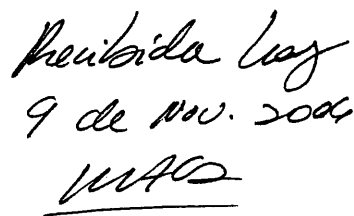 Recibida hoy
9 de Nov. 2006